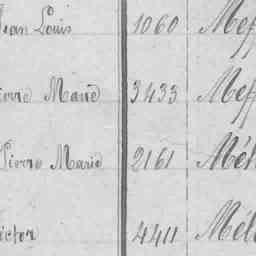 Jean Louis 1060 Meff
Pierre Marie 3433 Meff
Pierre Marie 2161 Méh
Victor 4411 Mél